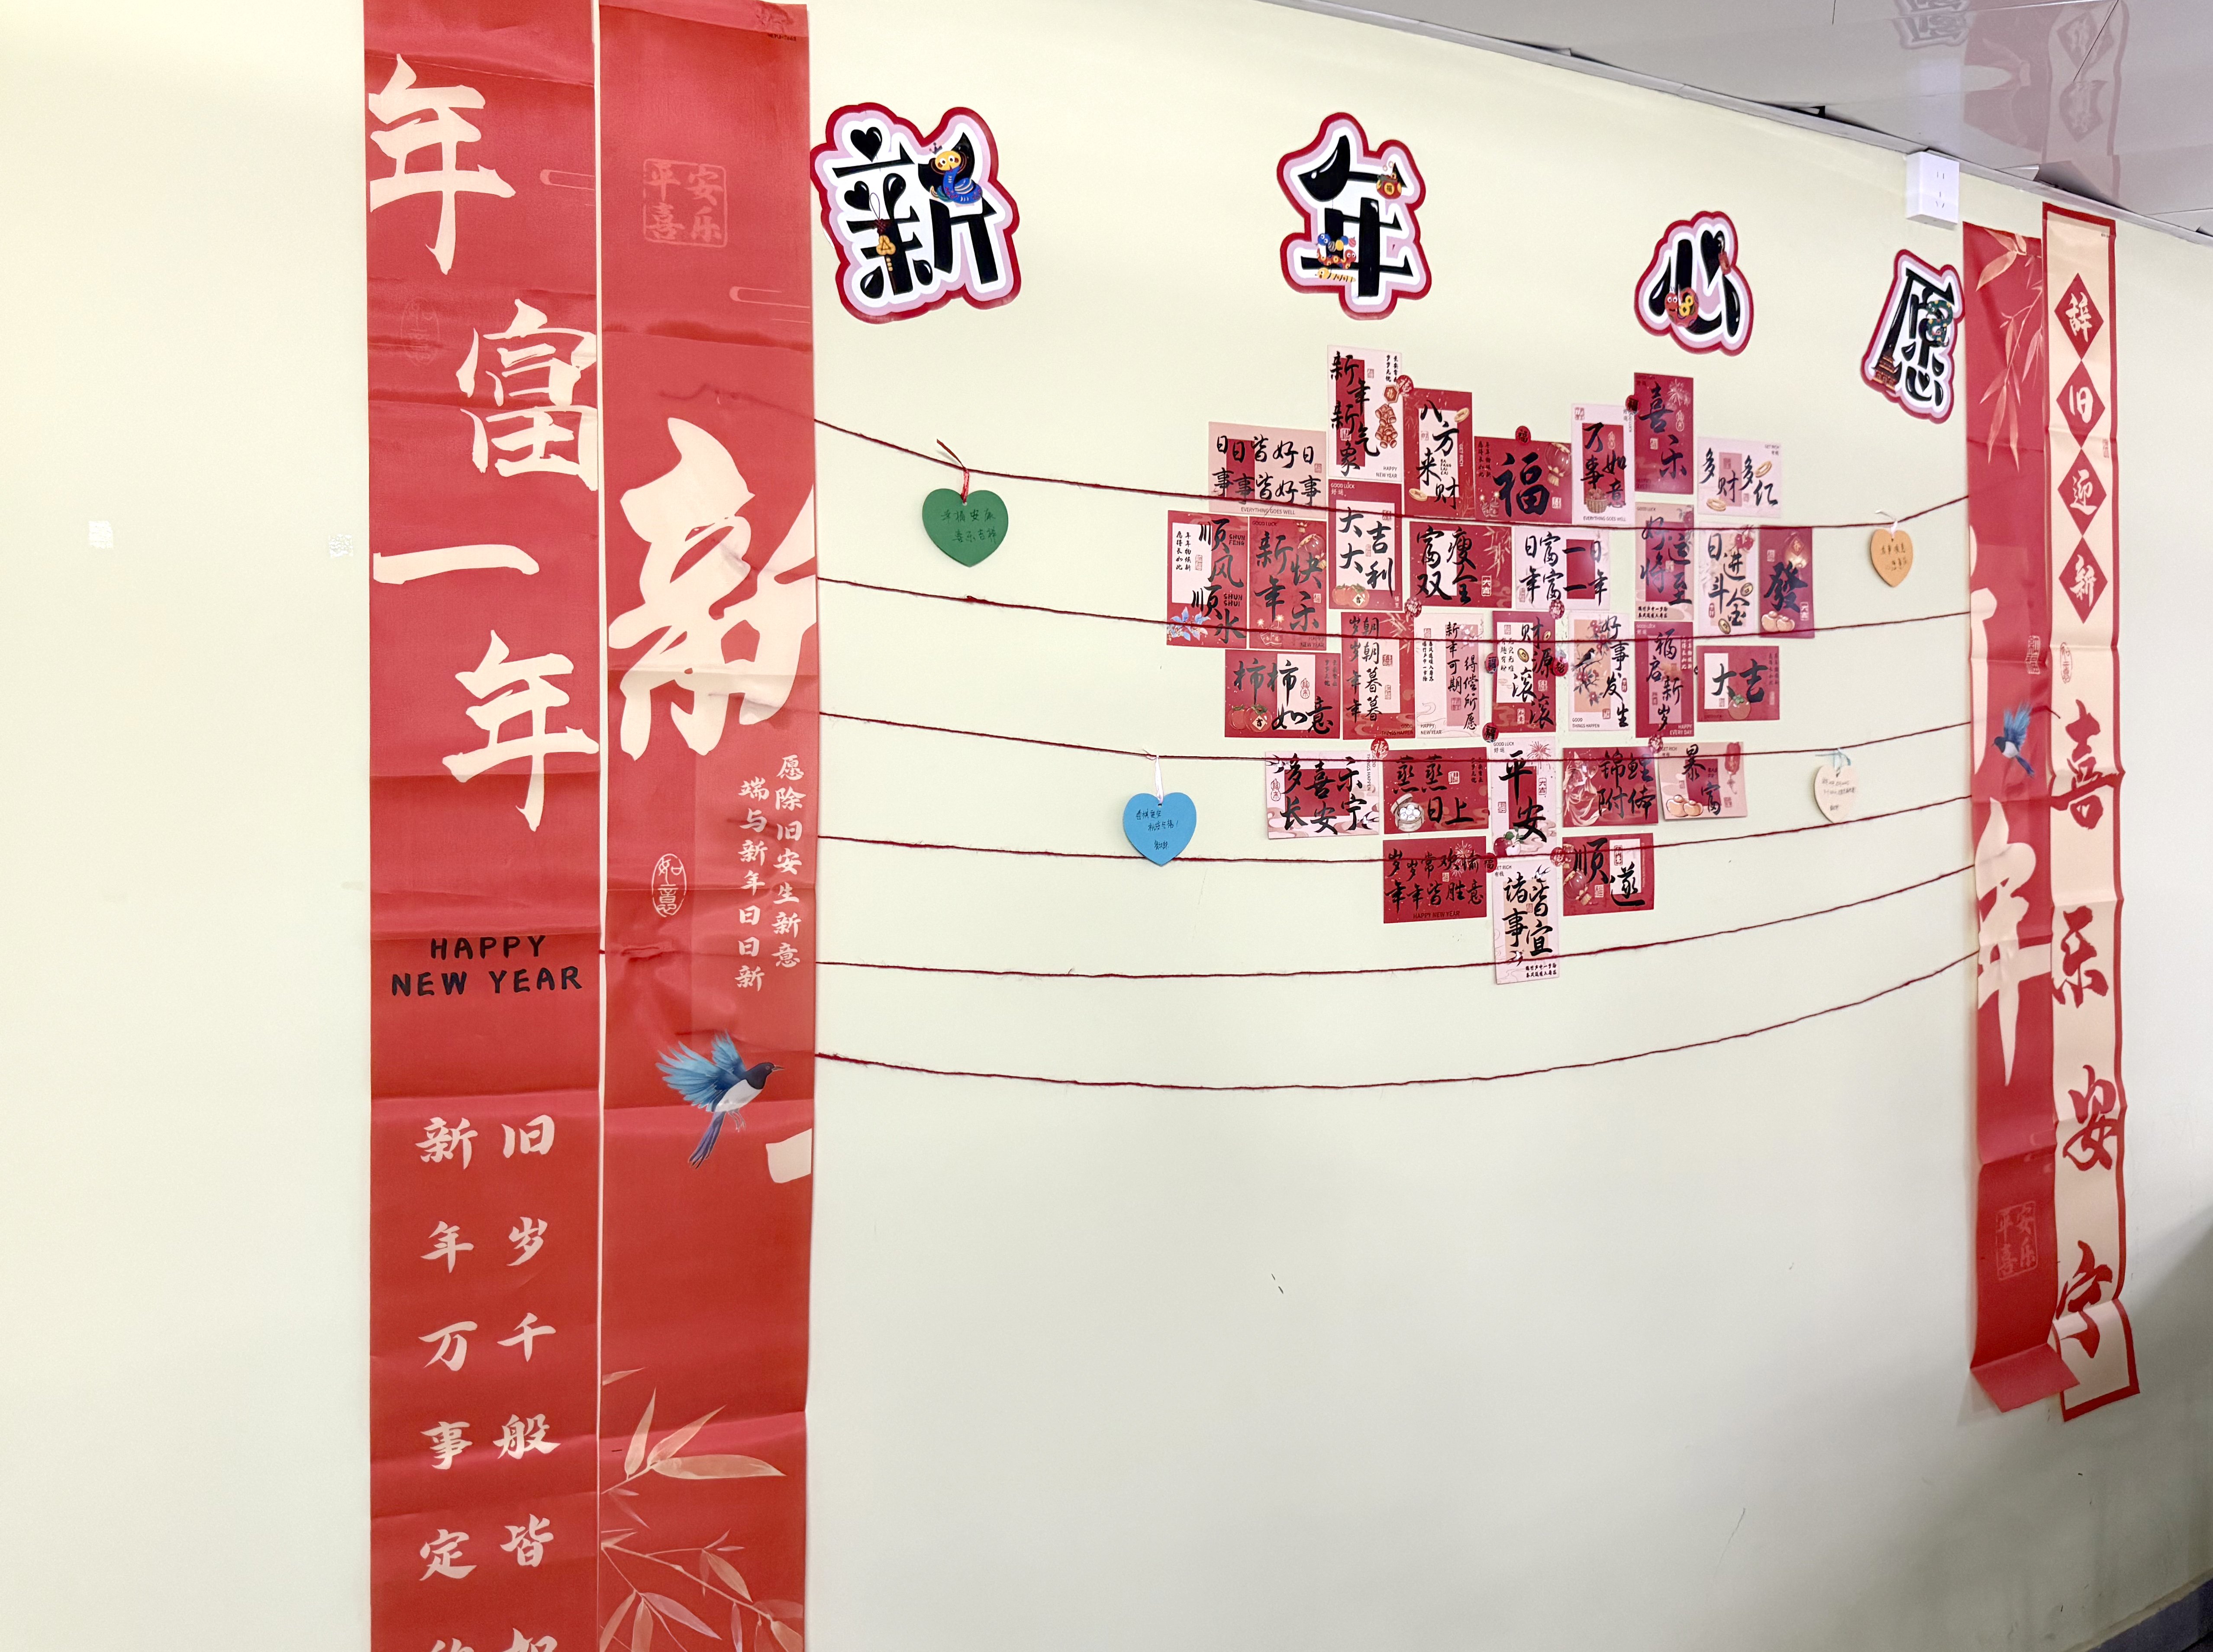 年富一年
HAPPY
NEW YEAR
旧岁千般皆
新年万事定
平安
喜乐
新
愿除旧安生新意
端与新年日日新
如意
新年心愿
新年新气象
HAPPY
NEW YEAR
八方来财
福
万事如意
EVERYTHING GOES WELL
喜乐
多财多亿
日日皆好日
事事皆好事
EVERYTHING GOES WELL
顺风顺水
SHUN
FENG
SHUN
SHUI
新年快乐
GOOD LUCK
大吉
大利
富瘦
双全
日富一日
年富一年
好运将至
日进斗金
發
柿柿如意
朝朝暮暮
岁岁年年
新年可期
得偿所愿
HAPPY
NEW YEAR
财源滚滚
好事发生
GOOD
THINGS HAPPEN
福启新岁
大吉
多喜乐
长安宁
蒸蒸日上
平安
锦鲤附体
暴富
岁岁常欢愉
年年皆胜意
HAPPY NEW YEAR
诸事皆宜
顺遂
年
平安
喜乐
辞旧迎新
喜乐安宁